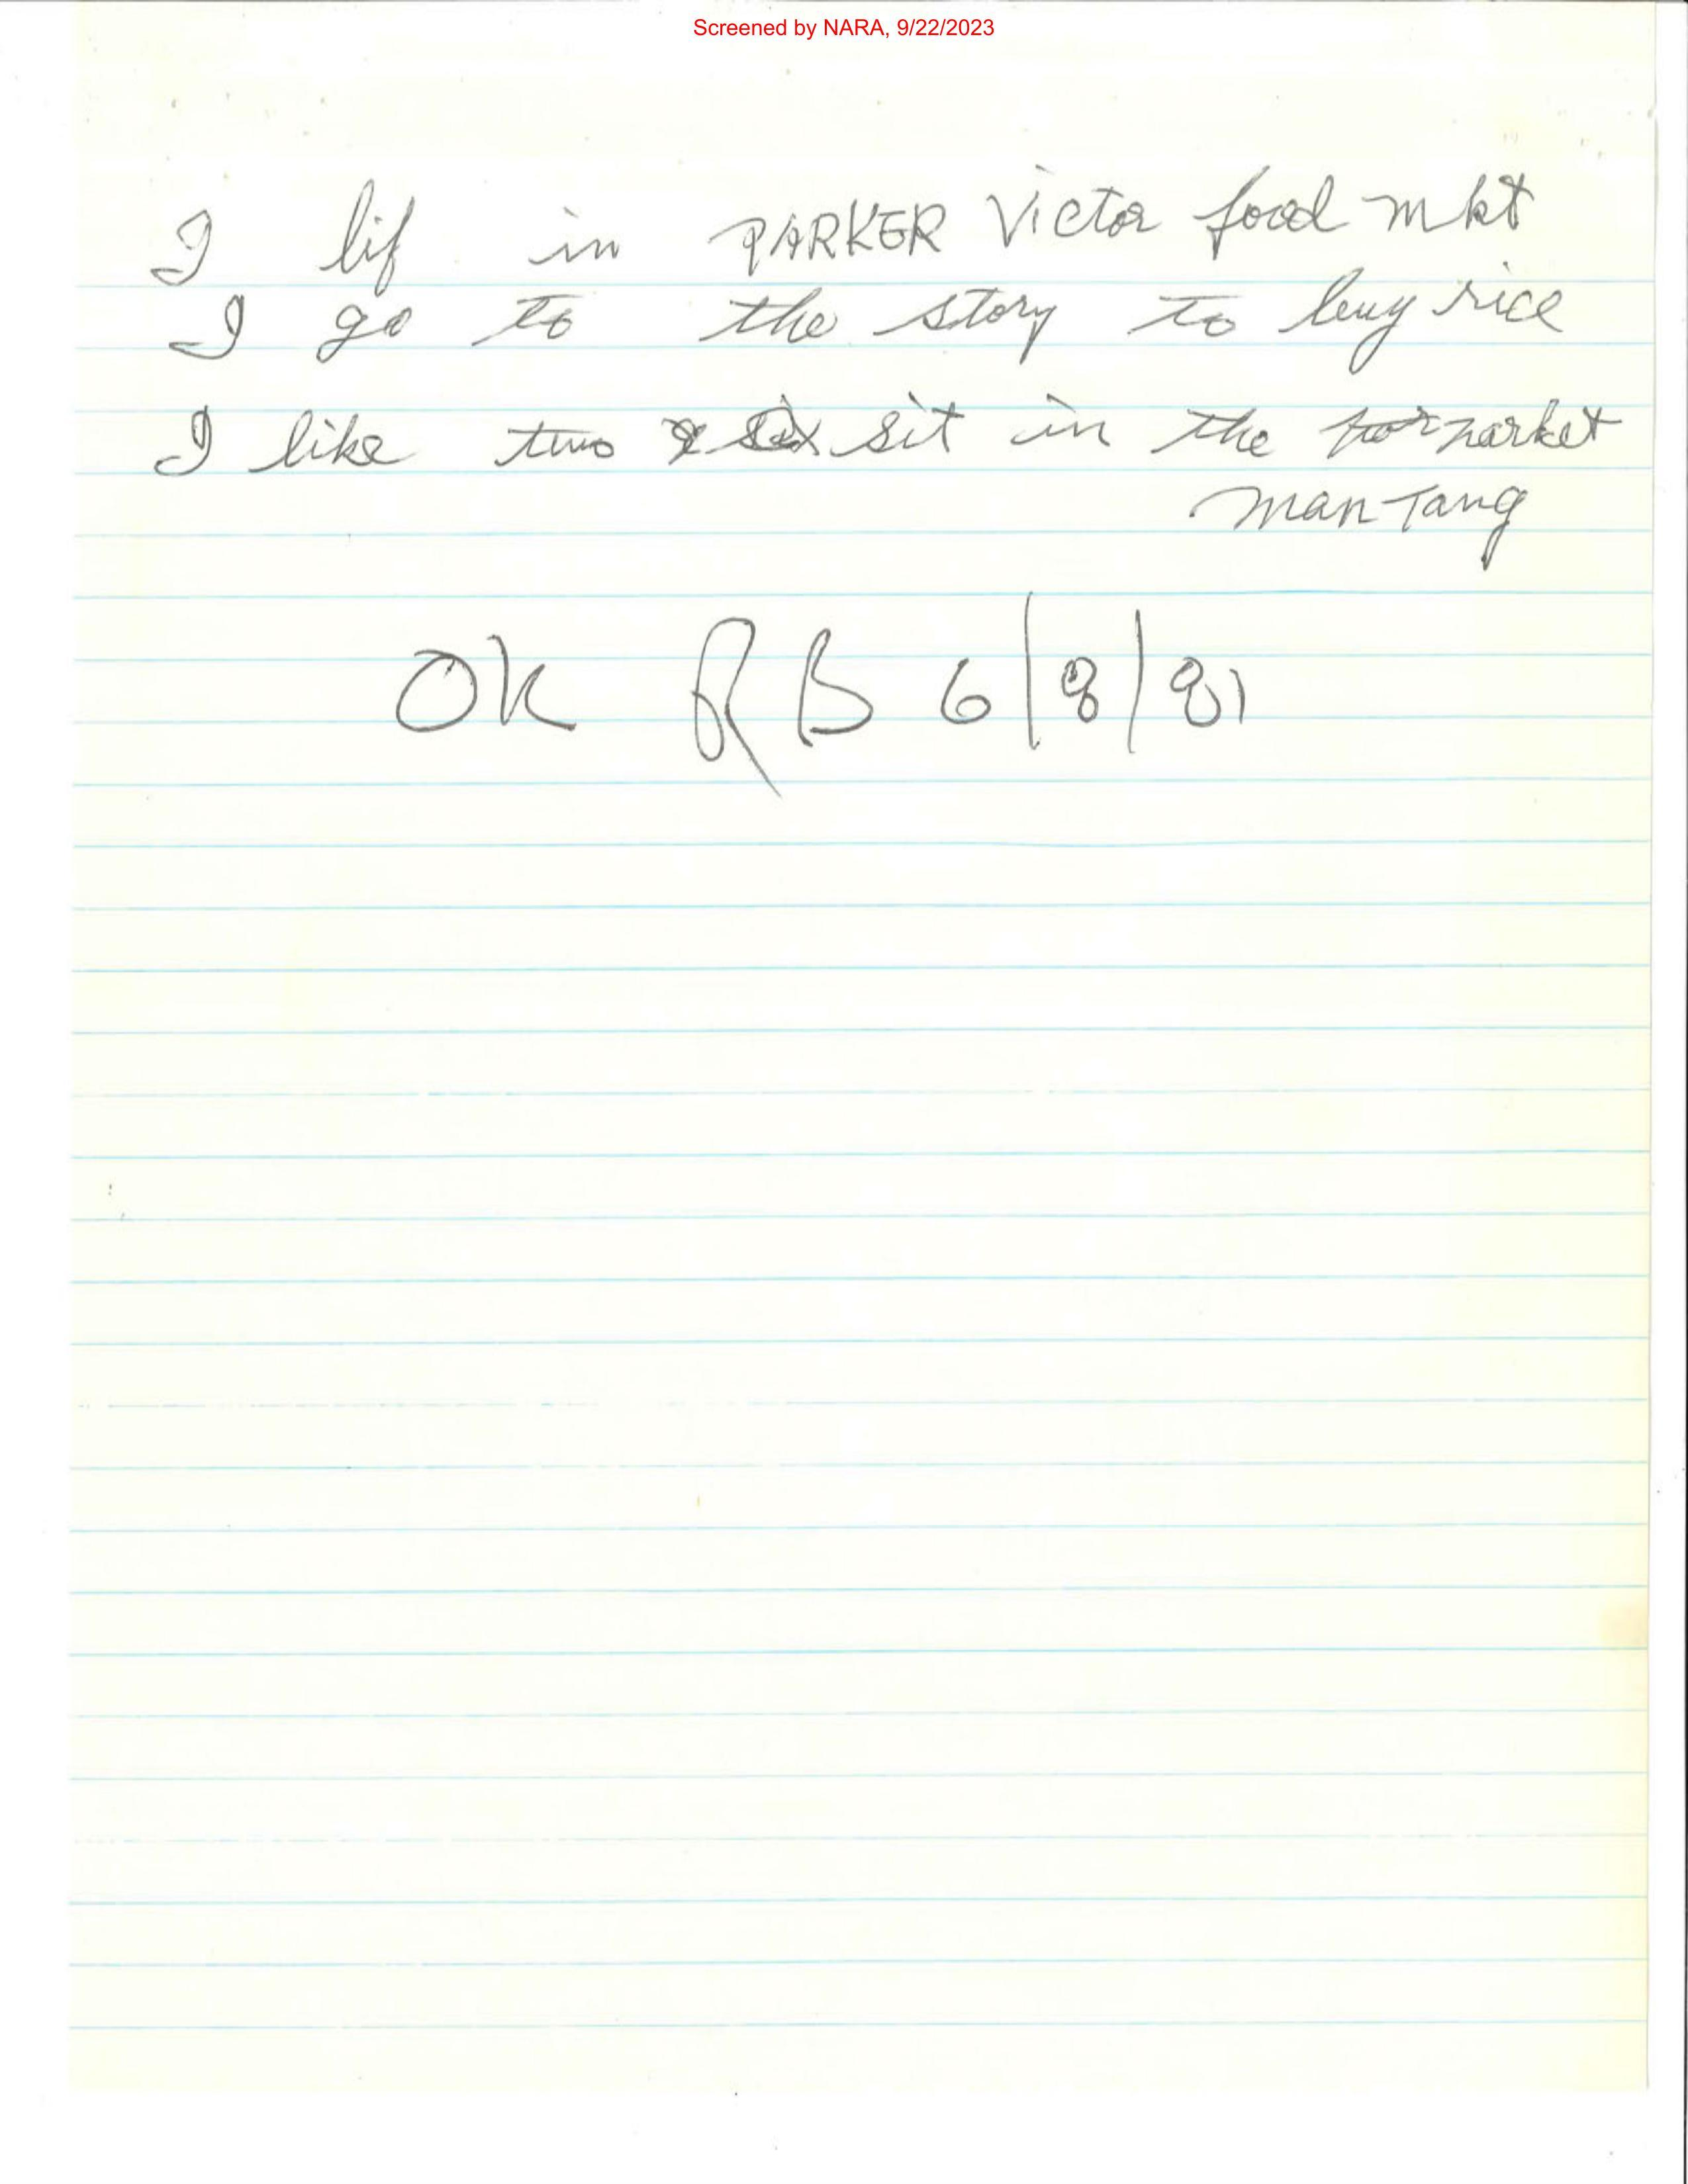 Screened by NARA, 9/22/2023
I lif in PARKER Victor food mkt
I go to the story to buy rice
I like two sit in the parket
man Tang
OK RB 6/8/81